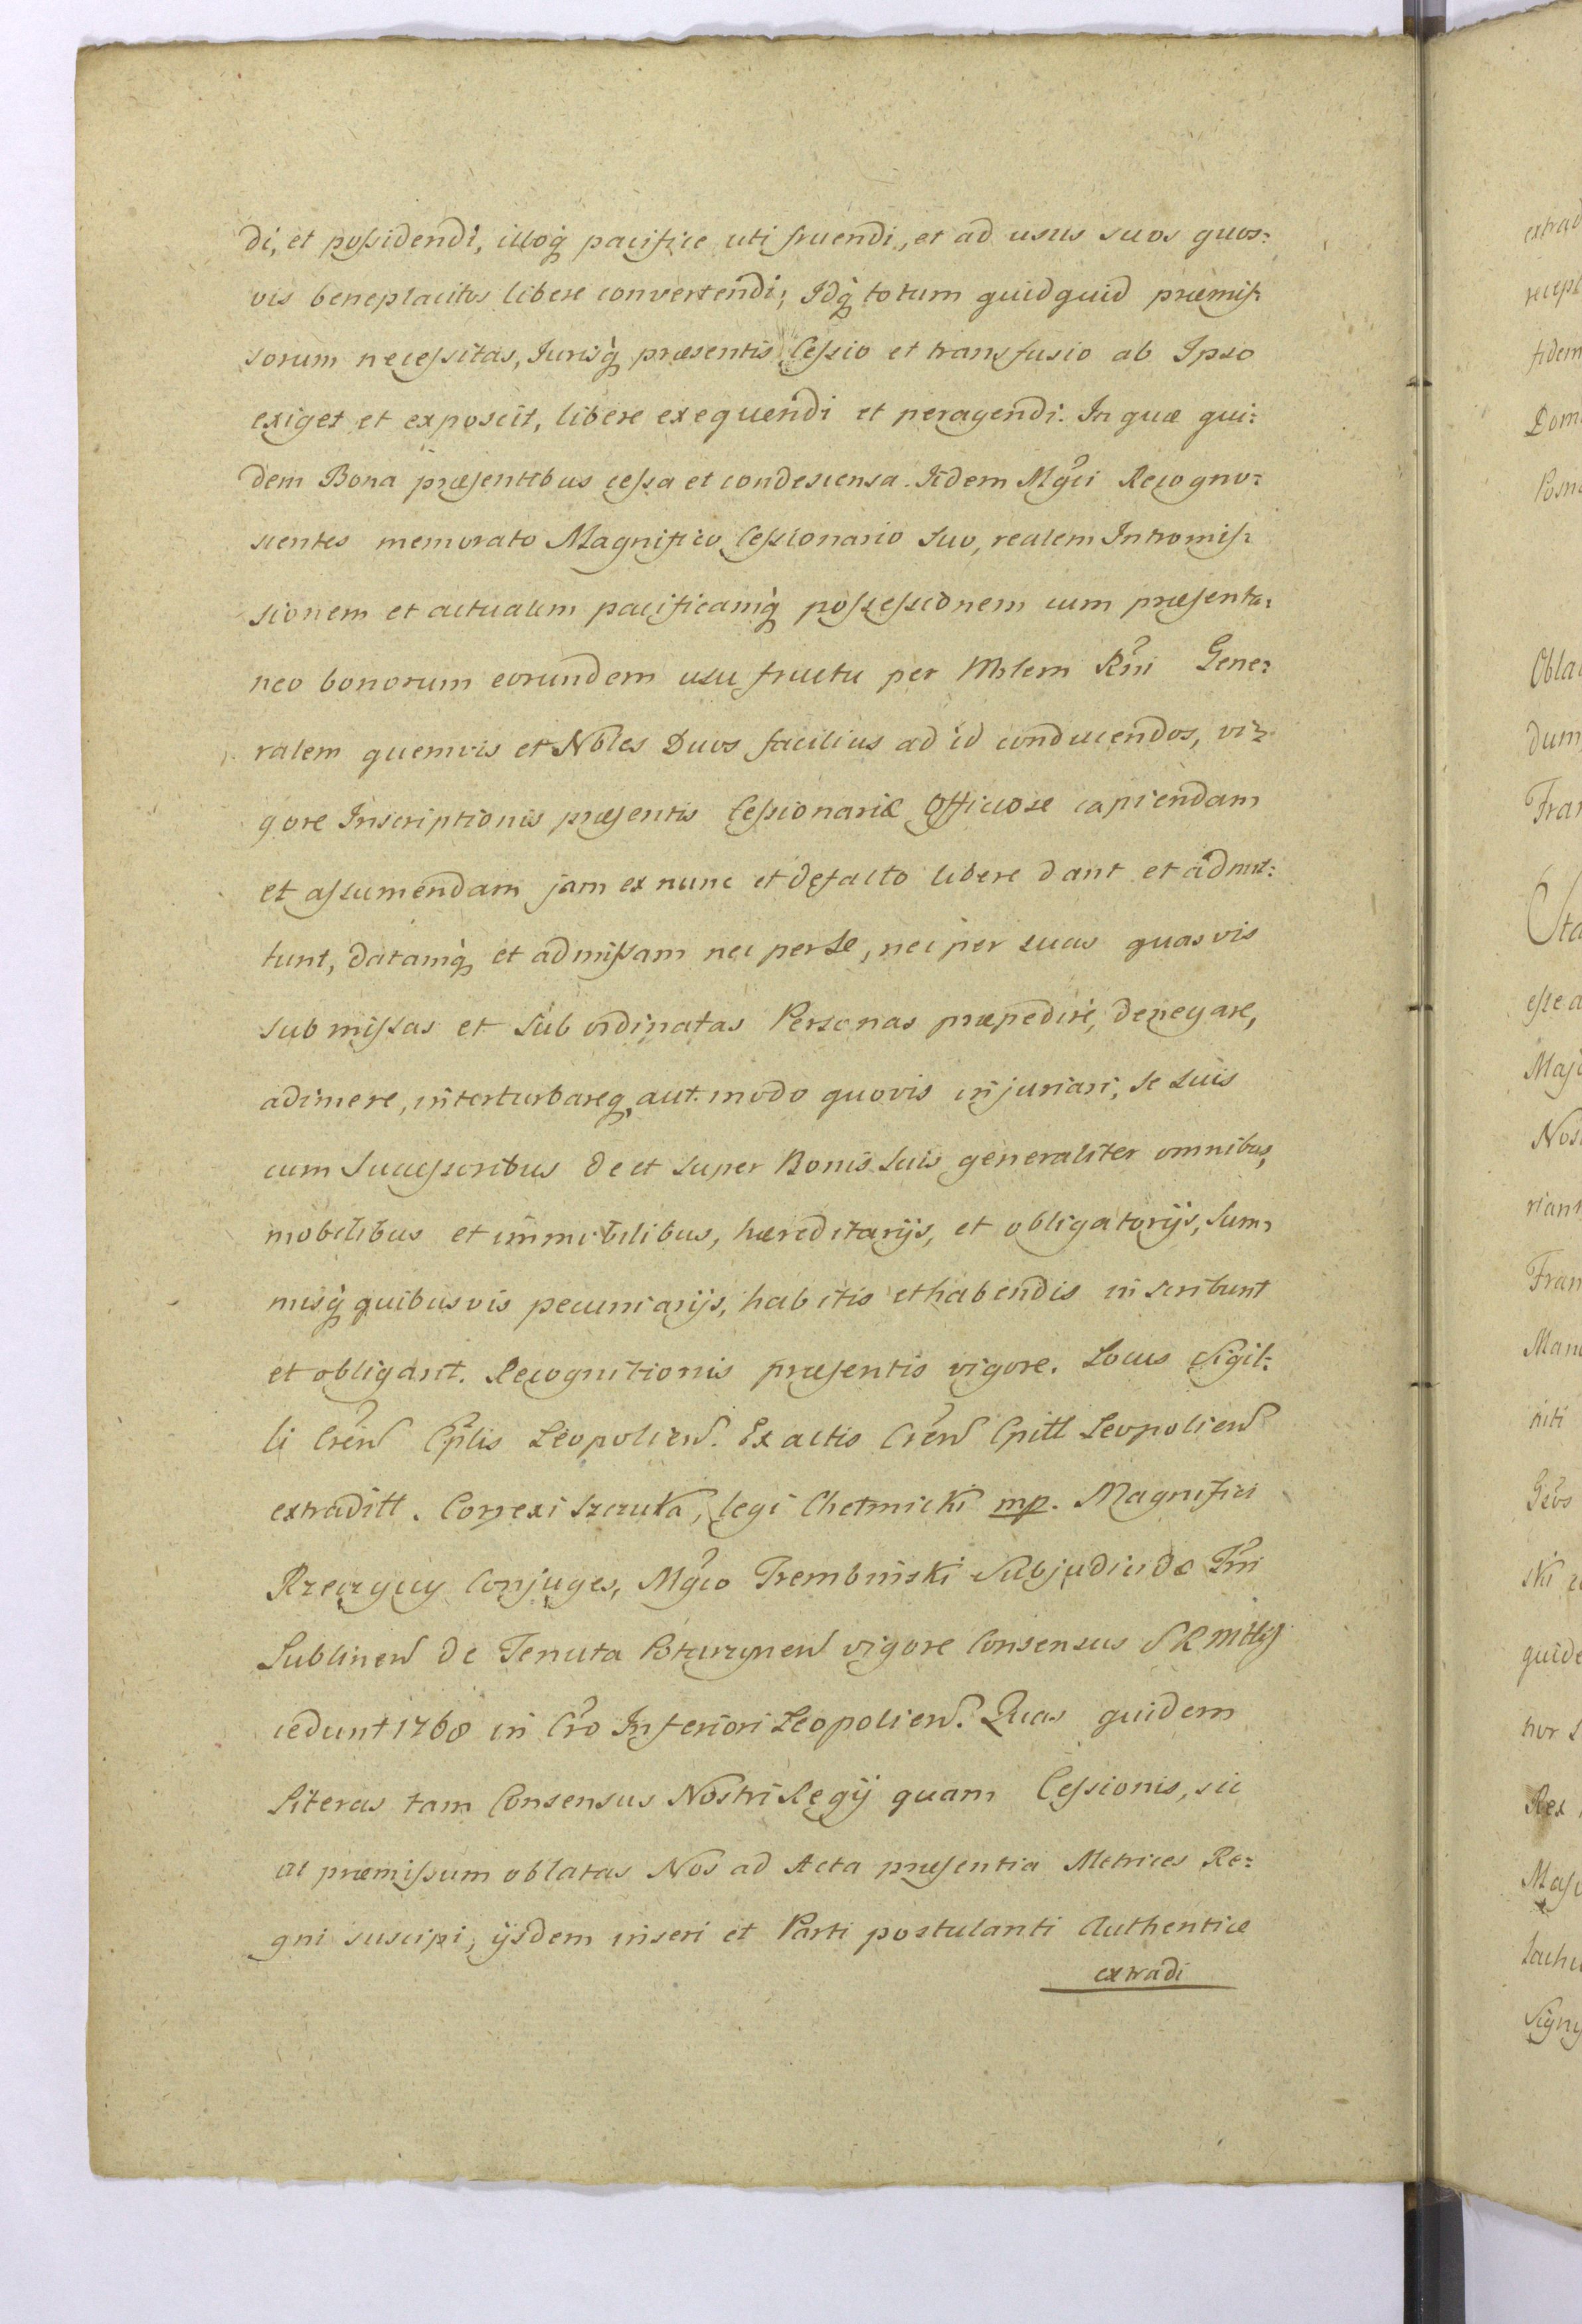 di, et possidendi, illoq̀ pacifice uti fruendi, et ad usus suos quos:
vis beneplacitos libere convertendi; Idq̀ totum quidquid præmis:
sorum necessitas, Iurisq̀ præsentis Cessio et transfusio ab Ipso
exiget et exposcit, libere exequendi et peragendi. In quæ qui:
dem Bona præsentibus cessa et condescensa. Iidem Mgci Recogno:
scentes memorato Magnifico Cessionario Suo, realem Intromis:
sionem et actualem pacificamq̀ possessionem cum præsenta:
neo bonorum eorundem usu fructu per Mlem Rni Gene:
ralem quemvis et Nobles Duos facilius ad id conducendos, vi:
gore Inscriptionis præsentis Cessionariæ Officiose capiendam
et assumendam jam ex nunc et de facto libere dant et admit:
tunt, datamq̀ et admissam nec per Se, nec per suas quasvis
submissas et subordinatas Personas præpedire, denegare,
adimere, interturbareq, aut modo quovis injuriari, Se Suis
cum Successoribus de et super Bonis Suis generaliter omnibus,
mobilibus et immobilibus, hæreditarijs, et obligatorijs, Sum:
misq̀ quibusvis pecuniarijs, habitis et habendis inscribunt
et obligant. Recognitionis præsentis vigore. Locus Sigil:
li Cren Cplis Leopolien. Ex actis Cren Cpitl Leopolien
extraditt. Correxi Szczuka, legi Chetmicki mp. Magnifici
Rzeczyccy Conjuges, Mgco Trembinski Subjudici de Tri
Lublinen de Tenuta Poturzynen vigore Consensus S R Mttis
cedunt 1768 in Cro Inferiori Leopolien. Quas quidem
Literas tam Consensus Nostri Regij quam Cessionis, sic
ac præmissum oblatas Nos ad Acta præsentia Metrices Re:
gni suscipi, ijsdem inseri et Parti postulanti Authentice
extradi
extrad
recept
fidem
Dom
Posn
Obla
dum
Fran
Sta
esse a
Maj
Nos
rian
Fran
Man
niti
ski
quide
nor
Rex
Maj
Sign